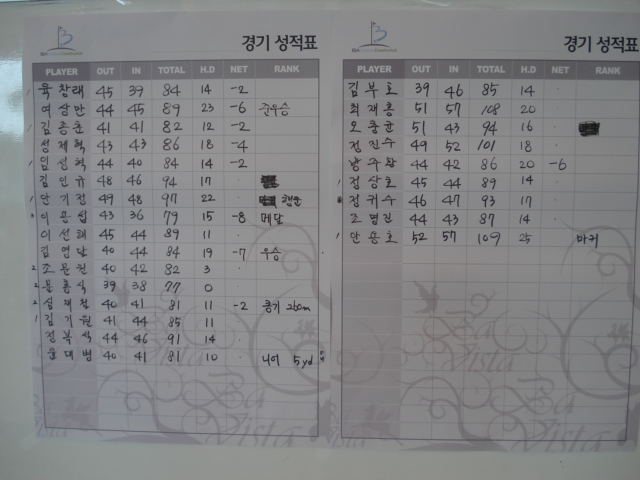 경기 성적표
PLAYER OUT IN TOTAL H.D NET RANK
육창래 45 39 84 14 -2
여상만 44 45 89 23 -6 준우승
김종훈 41 41 82 12 -2
성제혁 43 43 86 18 -4
임성혁 44 40 84 14 -2
김인규 48 46 94 17
안기전 49 48 97 22
이용섭 43 36 79 15 -8 메달
이선래 45 44 89 11
김영달 40 44 84 19 -7 우승
조문권 40 42 82 3
문홍식 39 38 77 0
심재철 40 41 81 11 -2 롱기 260m
김기원 41 44 85 11
정복식 44 46 91 14
윤대병 40 41 81 10 니어 5yd
La Vista
경기 성적표
PLAYER OUT IN TOTAL H.D NET RANK
김부호 39 46 85 14
최재홍 51 57 108 20
오충균 51 43 94 16
정진수 49 52 101 18
방주환 44 42 86 20 -6
정상호 45 44 89 14
정귀수 46 47 93 17
조명진 44 43 87 14
안승호 52 57 109 25
La Vista